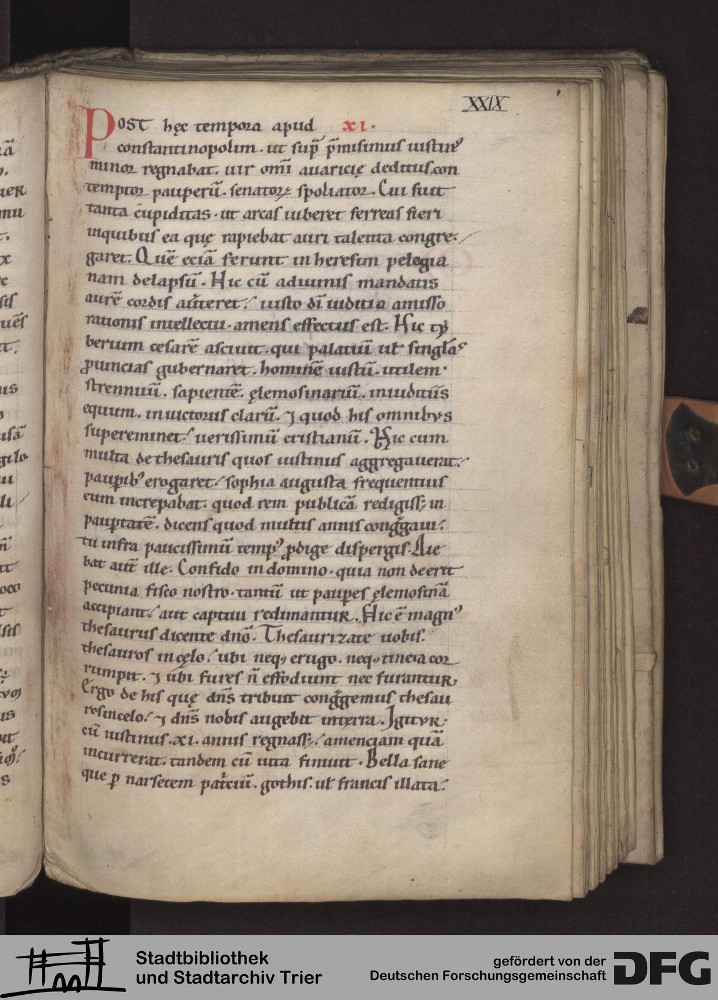 XXIX
Post hęc tempora apud xi.
constantinopolim. ut sup̄ p̄misimus iustinꝰ
minor regnabat. uir om̄i auaricię deditus. con
temptor pauperū. senatorꝝ spoliator. Cui fuit
tanta cupiditas. ut arcas iuberet ferreas fieri
inquibus ea quę rapiebat auri talenta congre
garet. Quē eciā ferunt in heresim pelagia
nam delapsū. Hic cū adiuinis mandatis
aurē cordis au̓teret. iusto dī iuditia amisso
rationis intellectu. amens effectus est. Hic tẏ
berium cesarē asciuit. qui palatiū ul̵ singlas
ꝓuincias gubernaret. hominē iustū. utilem.
strennuū. sapientē. ęlemosinariū. iniuditiis
equum. inuictoriis clarū. ⁊ quod his omnibys
supereminet. uerissimū cristianū. Hic cum
multa dethesauris quos iustinus aggregauerat.
paupibꝰ erogaret. sophia augusta frequentius
eum increpabat. quod rem publicā redigiss; in
pauptatē. dicens quod multis annis cong̅gaui.
tu infra paucissimū tempꝰ ꝓdige dispergis. Aie
bat autē ille. Confido in domino. quia non deerit
pecunia fisco nostro. tantū ut paupes ęlemosinā
accipiant. aut captiui redimantur. Hic ē magnꝰ
thesaurus dicente dn̄o. Thesaurizate uobis.
thesauros in cęlo. ubi neq; erugo. neq; tineia cor
rumpit. ⁊ ubi fures n̄ effodiunt nec furantur.
Ergo de his quę dn̄s tribuit cong̅gemus thesau
rosincelo. ⁊ dn̄s nobis augebit interra. Igitur.
cū iustinus. xi. annis regnass;. amenciam quā
incurrerat. tandem cū uita finiuit. Bella sane
que ꝑ narsetem patciū. gothis. ul̵ francis illata.
Stadtbibliothek
und Stadtarchiv Trier
gefördert von der
Deutschen Forschungsgemeinschaft
DFG